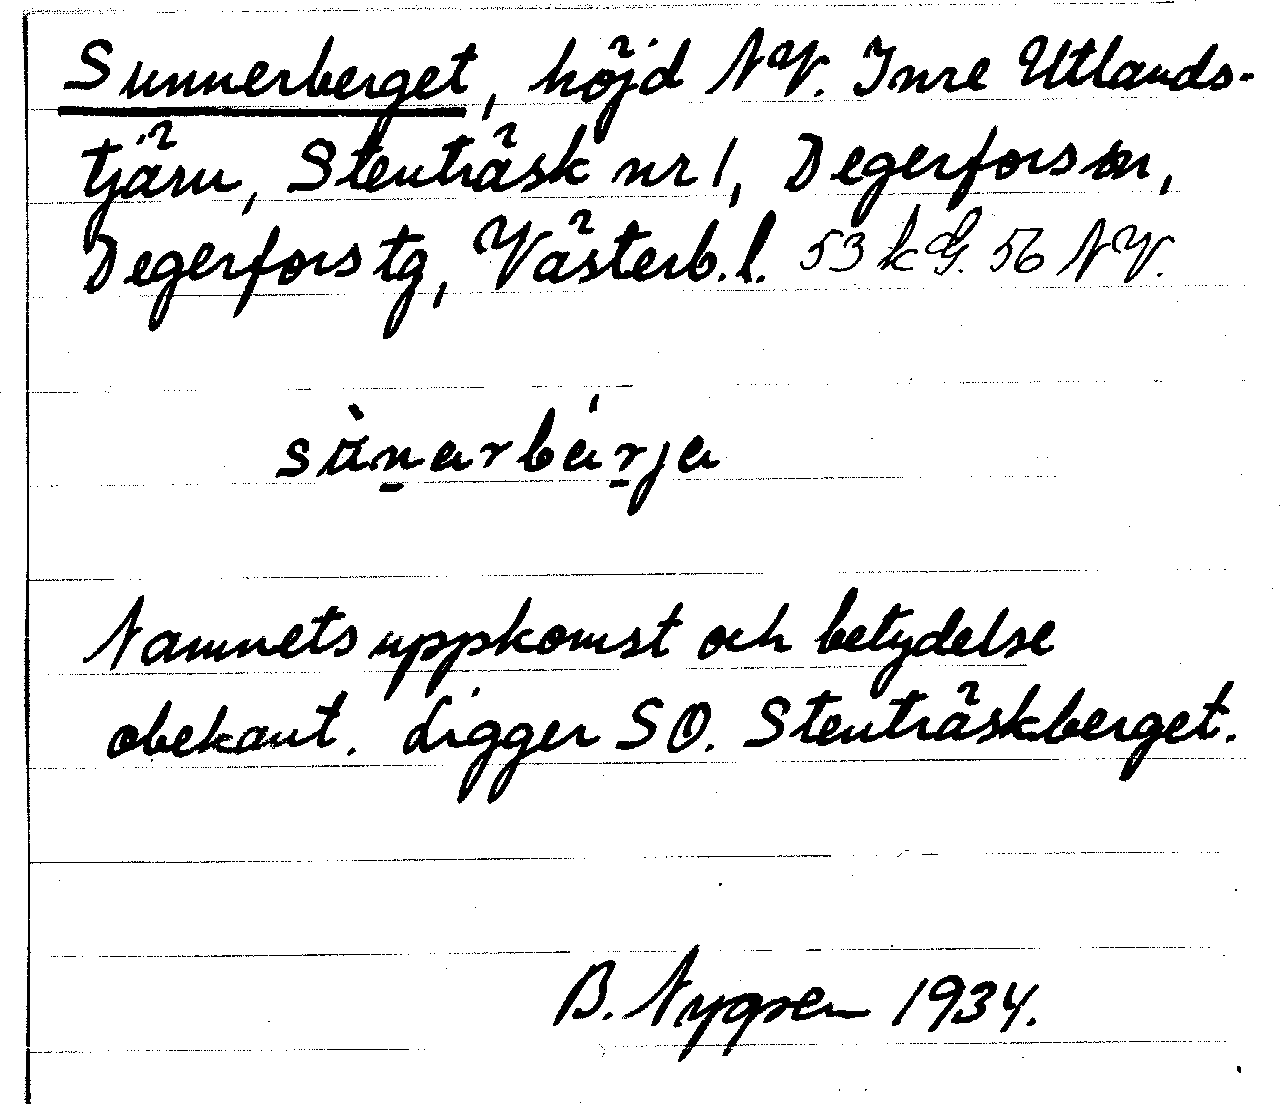 Sunnerberget, höjd NV. Inre Utlands-
tjärn, Stenträsk nr 1, Degerfors sn,
Degerfors tg, Västerb. l. 53 k G. 56 NV.
sùnarbárja
Namnets uppkomst och betydelse
obekant. Ligger SO. Stenträskberget.
B. Nygren 1934.